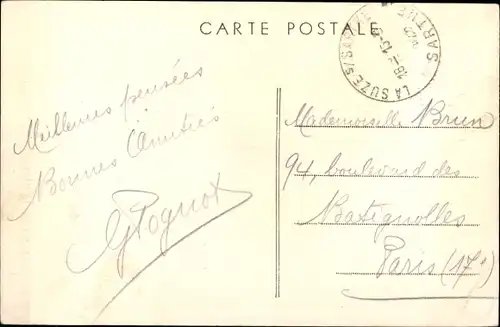 CARTE POSTALE
LA SUZE S/SARTHE
SARTHE
18
Meilleures pensées
Bonnes Amitiés
Mademoiselle Brun
94, boulevard des
Batignolles
Paris (17e)